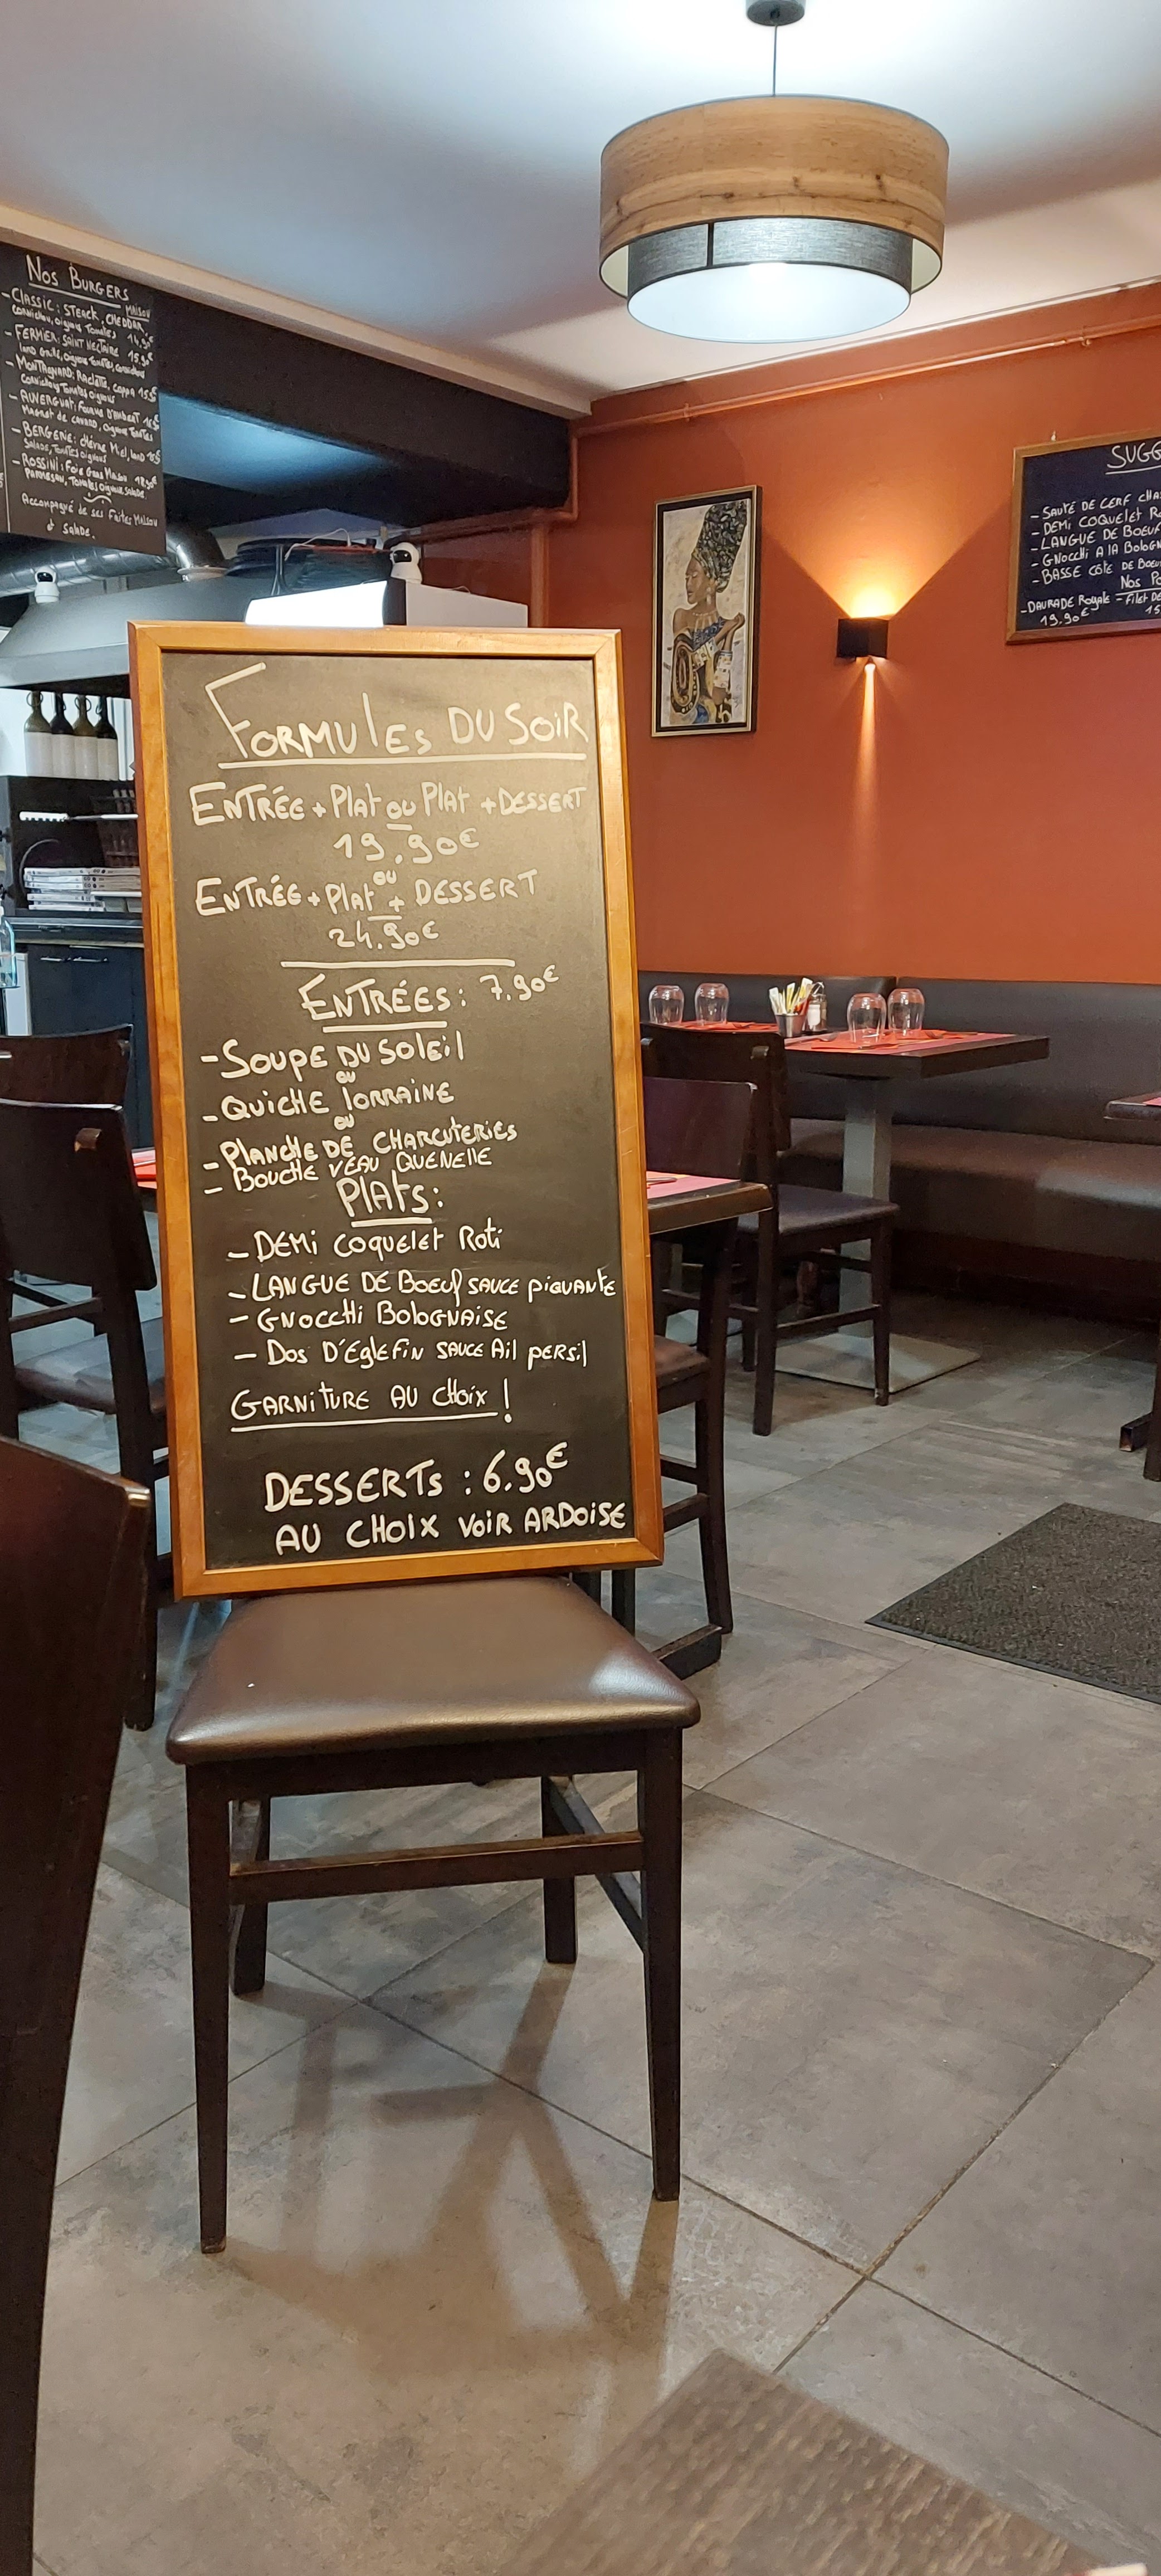 Nos Burgers
- Classic : Steack, Cheddar,
Cornichon, oignons Tomates 14,90€
Maison
- Fermier : Saint Nectaire 15,90€
- Montagnard : Raclette, Coppa
Cornichons Tomates oignons
- Auvergnat : Fourme D'Ambert
Magret de canard, oignons Tomates
- Bergerie : chèvre Miel, lard
Salade, Tomates oignons
- Rossini : Foie Gras Maison
Parmesan, Tomates oignons Salade.
Accompagné de ses Frites Maison
& Salade.
FORMULES DU SOIR
ENTRÉE + Plat ou Plat + DESSERT
19.90€
ou
ENTRÉE + Plat + DESSERT
24.90€
ENTRÉES : 7.90€
- SOUPE DU SOLEIL
ou
- QUICHE LORRAINE
ou
- PLANCHE DE CHARCUTERIES
- BOUCHE VEAU QUENELLE
PLATS :
- DEMI COQUELET ROTI
- LANGUE DE BOEUF SAUCE PIQUANTE
- GNOCCHI BOLOGNAISE
- DOS D'EGLEFIN SAUCE AIL PERSIL
GARNITURE AU CHOIX !
DESSERTS : 6.90€
AU CHOIX VOIR ARDOISE
SUGG
- SAUTÉ DE CERF CHA
- DEMI COQUELET RO
- LANGUE DE BOEUF
- GNOCCHI A LA BOLOGN
- BASSE CÔTE DE BOEU
Nos Po
- DAURADE Royale - Filet DE
19.90€ 15